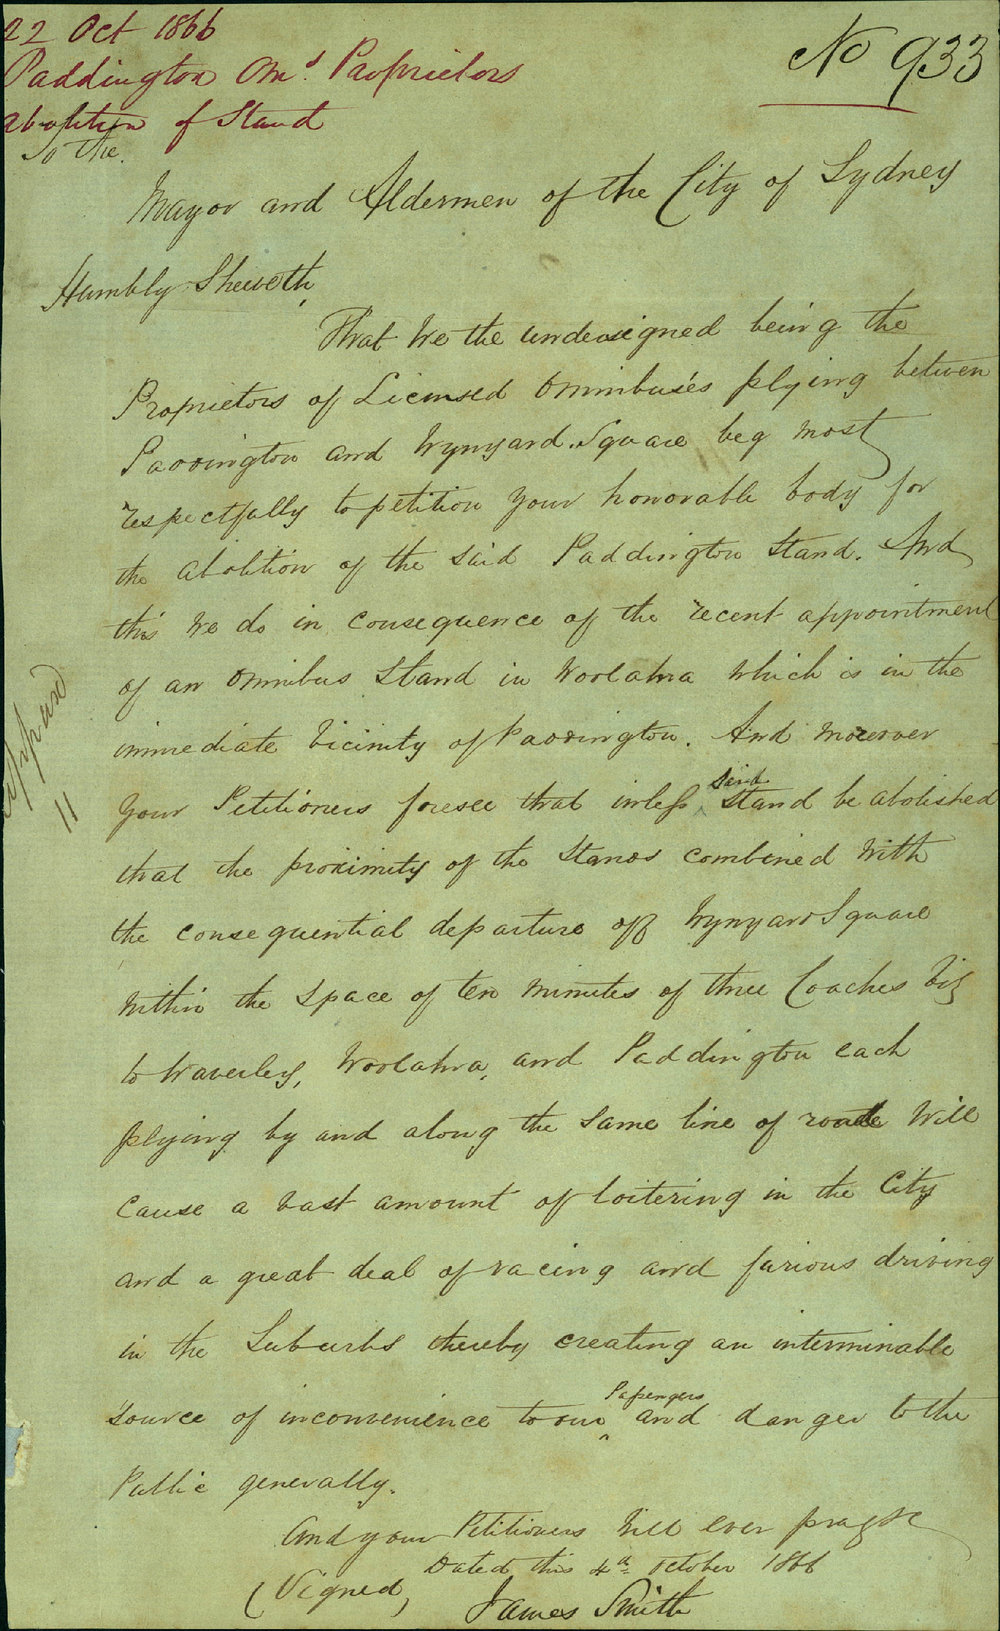 22 Oct 1866
No 933
Paddington Omˢ Proprietors
abolition of Stand
To the
Mayor and Aldermen of the City of Sydney
Humbly Sheweth,
That We the undersigned being the
Proprietors of Licensed Omnibuses plying between
Paddington and Wynyard Square beg most
respectfully to petition your honorable body for
the abolition of the said Paddington Stand. And
this We do in consequence of the recent appointment
of an Omnibus Stand in Woolahra which is in the
immediate vicinity of Paddington. And moreover
Your Petitioners foresee that unless said Stand be abolished
that the proximity of the Stands combined With
the consequential departure off Wynyard Square
Within the space of ten minutes of three Coaches Viz
to Waverley, Woolahra, and Paddington each
plying by and along the same line of route Will
cause a vast amount of loitering in the City
and a great deal of racing and furious driving
in the Suburbs thereby creating an interminable
source of inconvenience to our Passengers and danger to the
Public generally.
And your Petitioners Will ever pray &c
Dated this 4th October 1866
(Signed)
James Smith
11